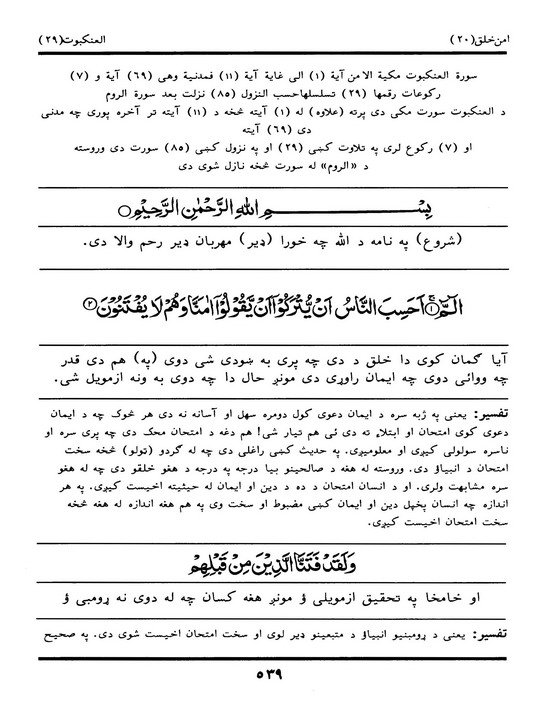 امن خلق (۲۰) العنکبوت (۲۹)
سورة العنکبوت مکیة الا من آیة (۱) الی غایة آیة (۱۱) فمدنیة وهی (۶۹) آیة و (۷)
رکوعات رقمها (۲۹) تسلسلهاحسب النزول (۸۵) نزلت بعد سورة الروم
د العنکبوت سورت مکی دی پرته (علاوه) له (۱) آیته څخه د (۱۱) آیته تر آخره پوری چه مدنی
دی (۶۹) آیته
او (۷) رکوع لری په تلاوت کښی (۲۹) او په نزول کښی (۸۵) سورت دی وروسته
د «الروم» له سورت څخه نازل شوی دی
بِسْمِ اللهِ الرَّحْمٰنِ الرَّحِيْمِ
(شروع) په نامه د الله چه خورا (ډیر) مهربان ډیر رحم والا دی.
الٓمّٓ ۱ اَحَسِبَ النَّاسُ اَنْ يُّتْرَكُوْٓا اَنْ يَّقُوْلُوْٓا اٰمَنَّا وَهُمْ لَا يُفْتَنُوْنَ ۲
آیا ګمان کوی دا خلق د دی چه پری به ښودی شی دوی (په) هم دی قدر
چه ووائی دوی چه ایمان راوړی دی مونږ حال دا چه دوی به ونه ازمویل شی.
تفسیر: یعنی په ژبه سره د ایمان دعوی کول دومره سهل او آسانه نه دی هر څوک چه د ایمان
دعوی کوی امتحان او ابتلاء ته دی ئی هم تیار شی! هم دغه د امتحان محک دی چه پری سره او
ناسره سولولی کیږی او معلومیږی. په حدیث کښی راغلی دی چه له ګردو (ټولو) څخه سخت
امتحان د انبیاؤ دی. وروسته له هغه د صالحینو بیا درجه په درجه د هغو خلقو دی چه له هغو
سره مشابهت ولری. او د انسان امتحان د ده د دین او ایمان له حیثیته اخیست کیږی. په هر
اندازه چه انسان پخپل دین او ایمان کښی مضبوط او سخت وی په هم هغه اندازه له هغه څخه
سخت امتحان اخیست کیږی.
وَلَقَدْ فَتَنَّا الَّذِيْنَ مِنْ قَبْلِهِمْ
او خامخا په تحقیق ازمویلی ؤ مونږ هغه کسان چه له دوی نه ړومبی ؤ
تفسیر: یعنی د ړومبنیو انبیاؤ د متبعینو ډیر لوی او سخت امتحان اخیست شوی دی. په صحیح
۵۳۹